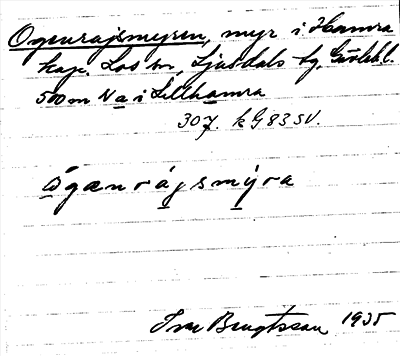 Ogenrajsmyren, myr i Hamra
kap. Los sn, Ljusdals tg, Gävleb.l.
500 m N a i Lillhamra
307. kG 83 SV.
ògænrájsmýra
Ivar Bengtsson 1935